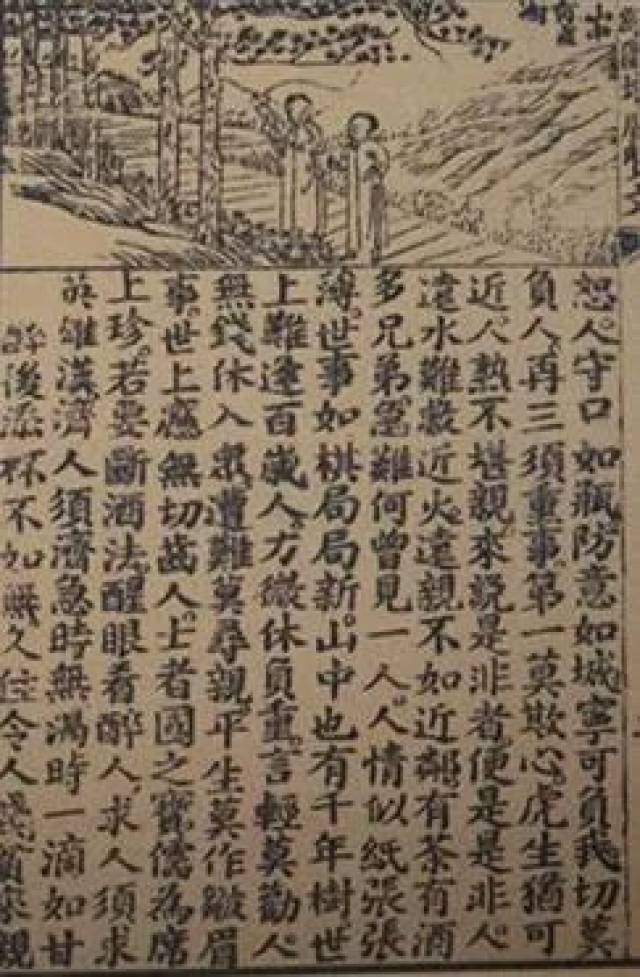 恕人守口如瓶防意如城寧可負我切莫
負人再三須重事第一莫欺心虎生猶可
近人熟不堪親來説是非者便是是非人
遠水難救近火遠親不如近鄰有茶有酒
多兄弟急難何曾見一人人情似紙張張
薄世事如棋局局新山中也有千年樹世
上難逢百歲人力微休負重言輕莫勸人
無錢休入衆遭難莫尋親平生莫作皺眉
事世上應無切齒人士者國之寶儒為席
上珍若要斷酒法醒眼看醉人求人須求
英雄漢濟人須濟急時無渴時一滴如甘
後添杯不如無久住令人賤來親